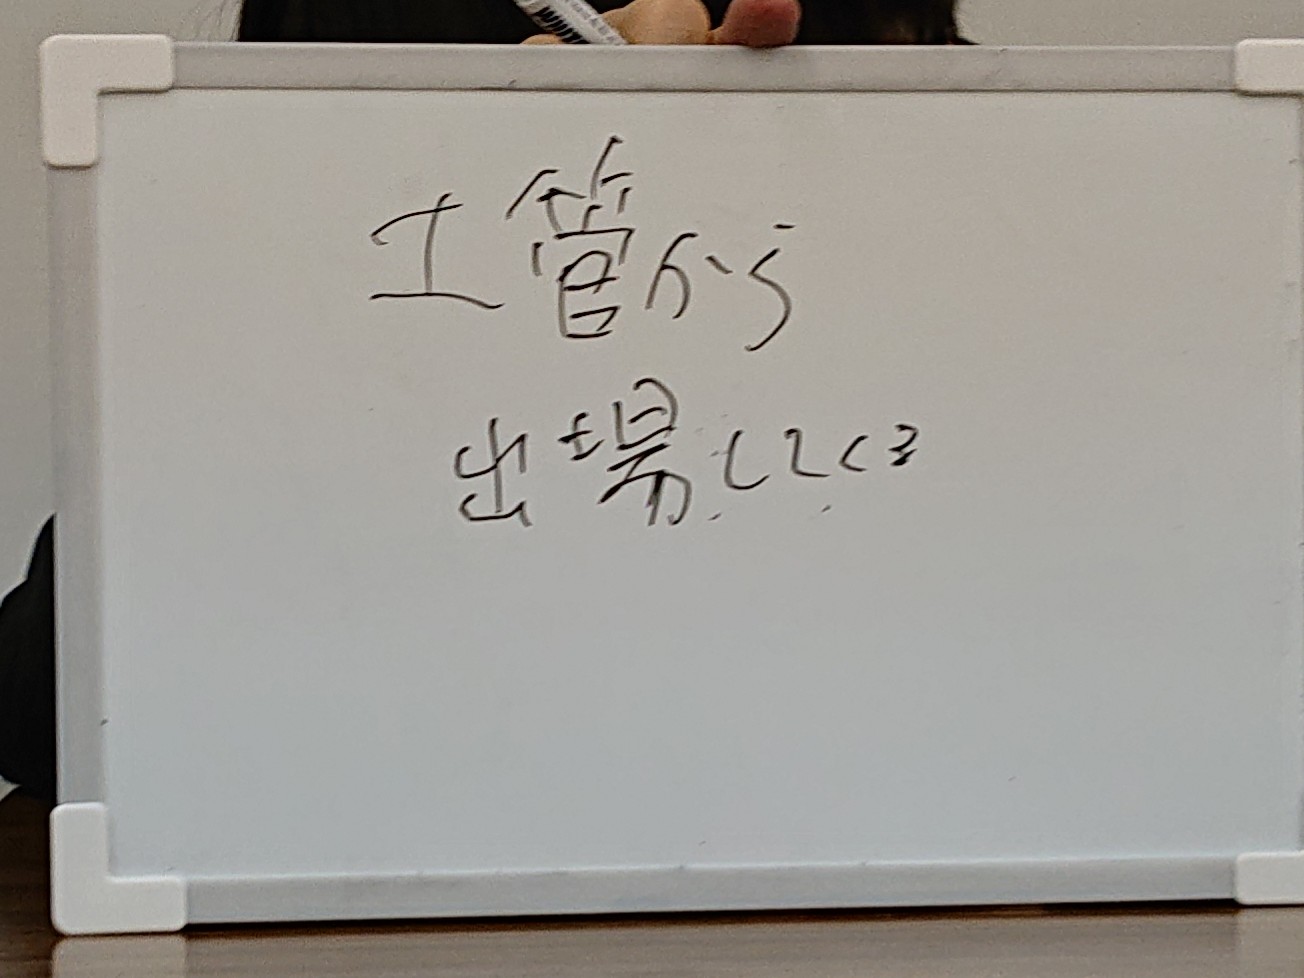 土管から
出場してくる